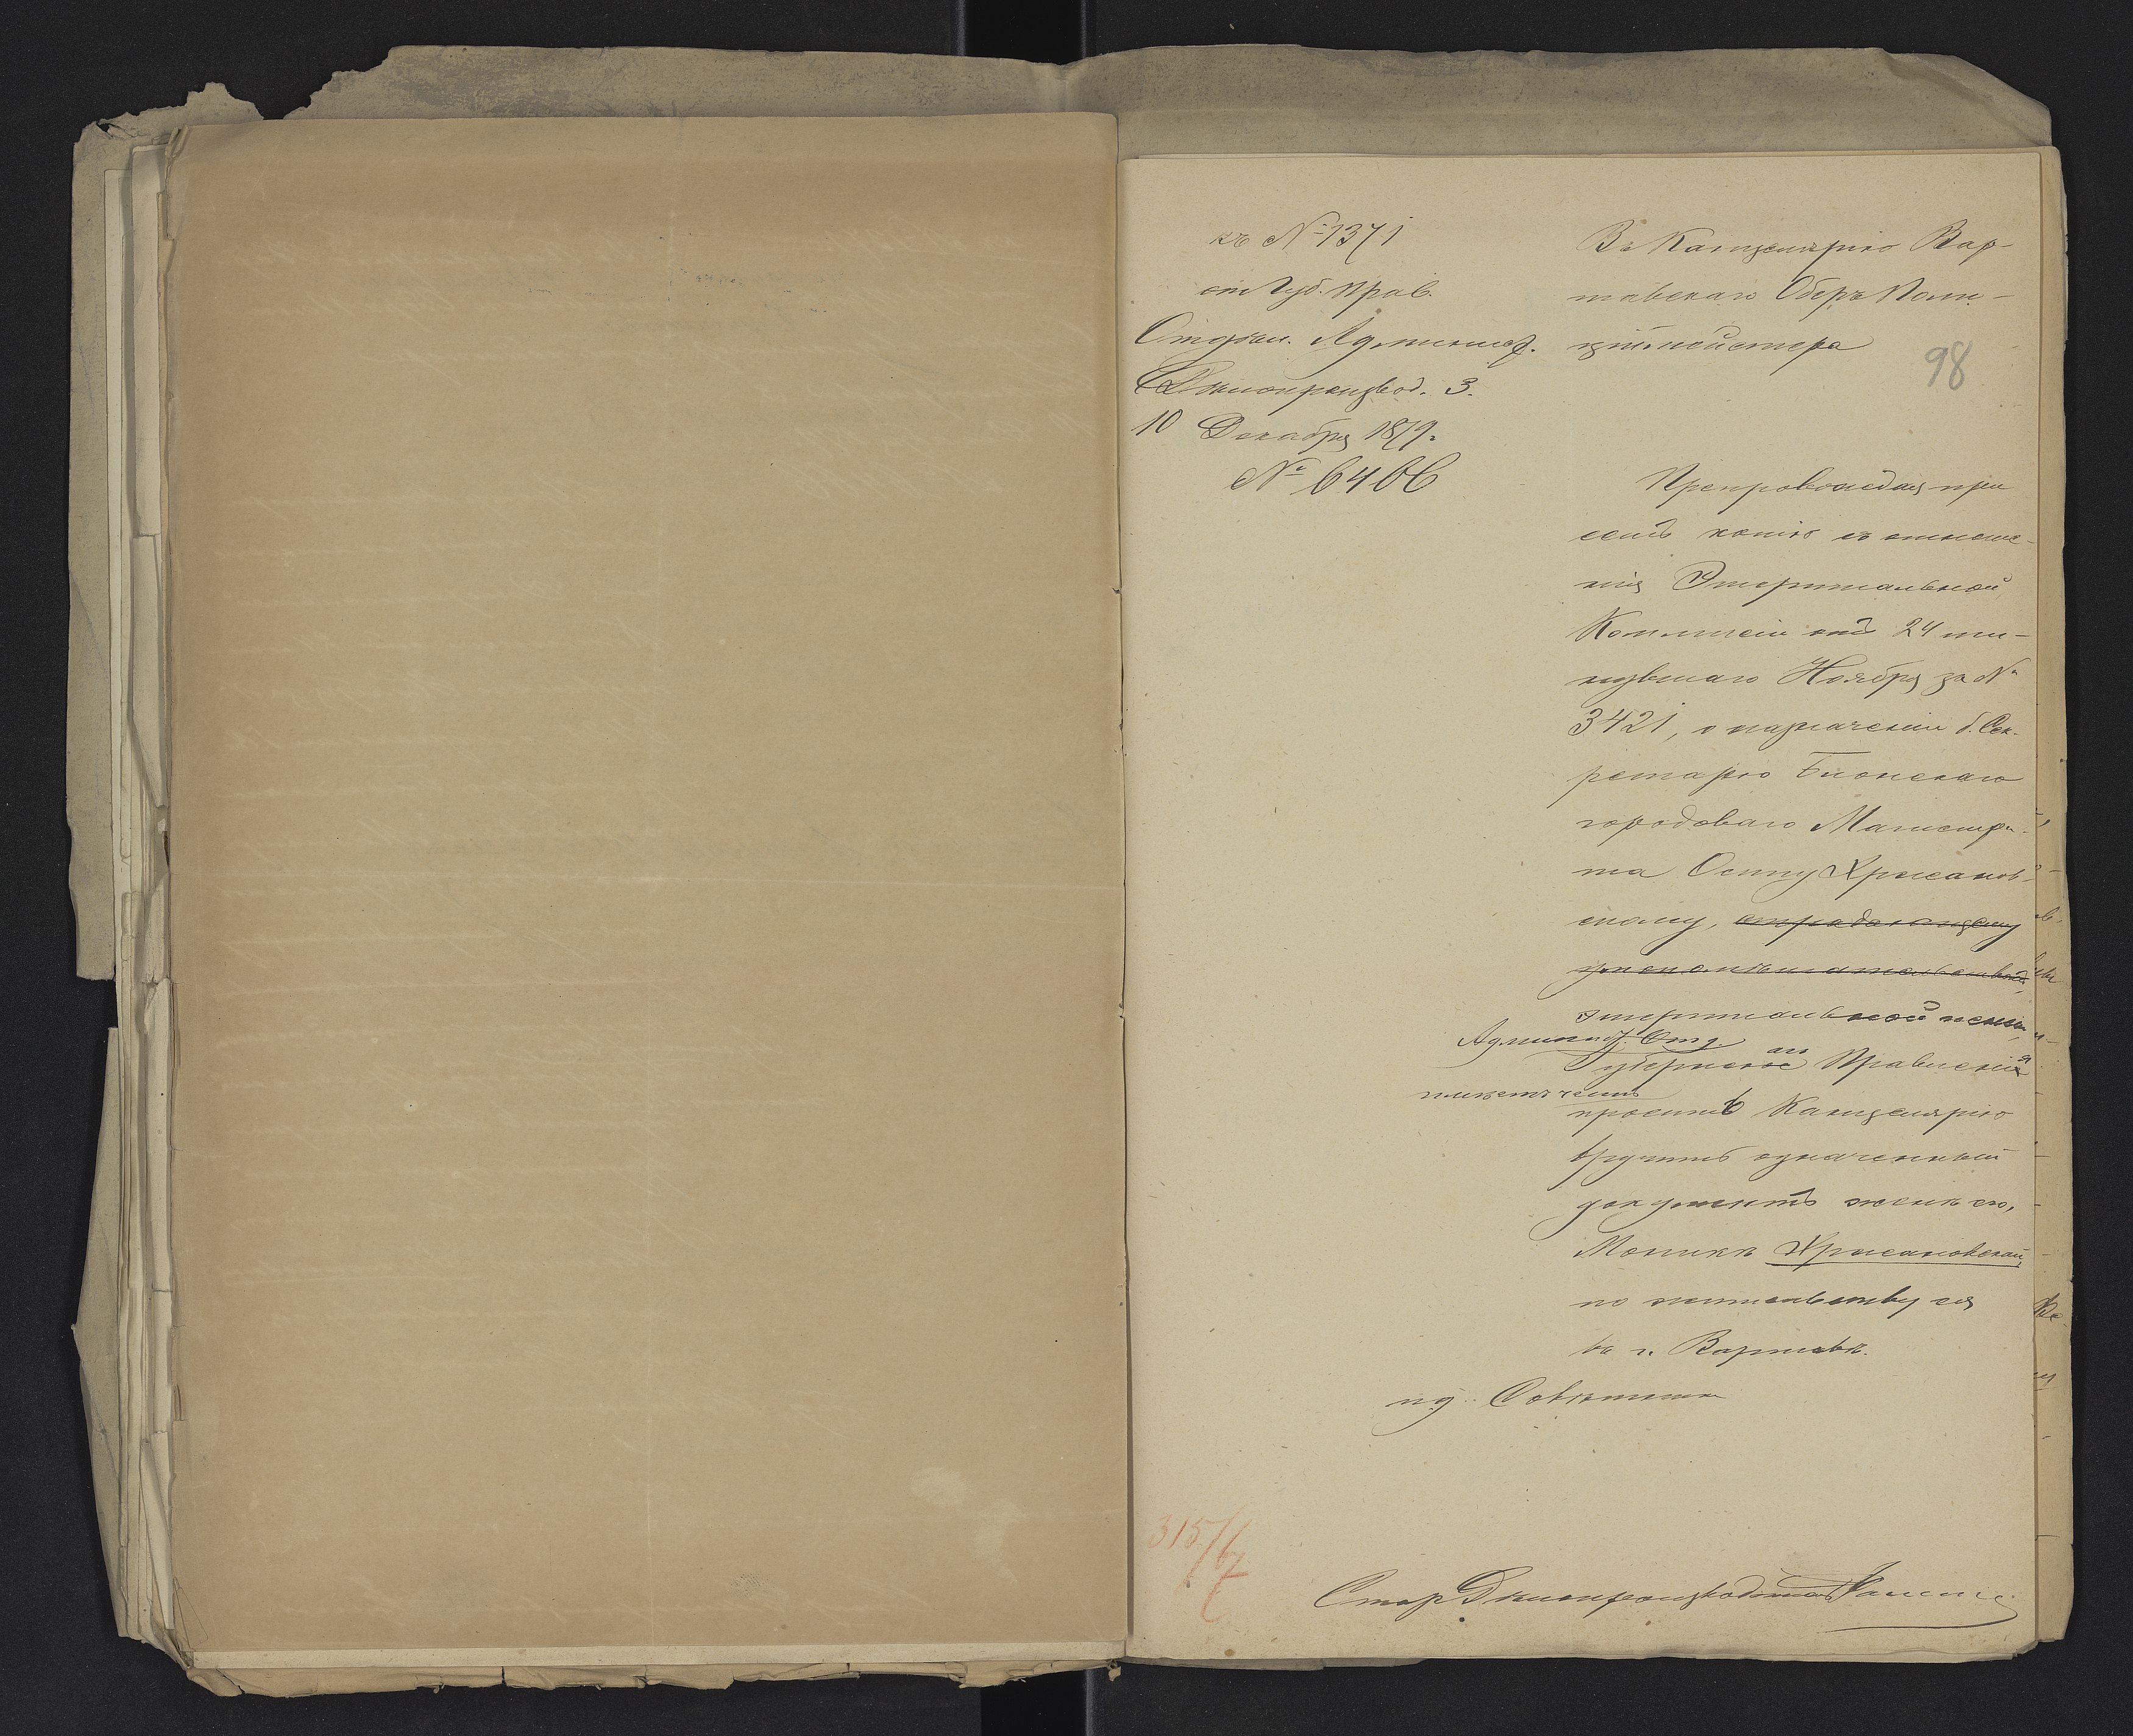 къ № 1371
отъ Губ. Прав.
Отдѣл. Админист.
Дѣлопроизвод. 3.
10 Декабря 1879 г.
№ 6466
Въ Канцелярію Вар-
шавскаго Оберъ Поли-
ційместера
98
Препровождая при
семъ копію съ отноше-
нія Эмеритальной
Коммисіи отъ 24 ми-
нувшаго Ноября за №
3421, о назначеніи б. Сек-
ретарю Блонскаго
городоваго Магистра-
та Осипу Хрысанов-
скому, страдающему
умопомѣшательствомъ,
эмеритальной пенсіи,
Админист. Отд.
Губернскаго Правленія
имѣетъ честь
проситъ Канцелярію
вручить означенный
документъ женѣ его,
Моникѣ Хрысановской,
по жительству ея
въ г. Варшавѣ.
пд. Совѣтника
315/67
Стар Дѣлопроизводитель